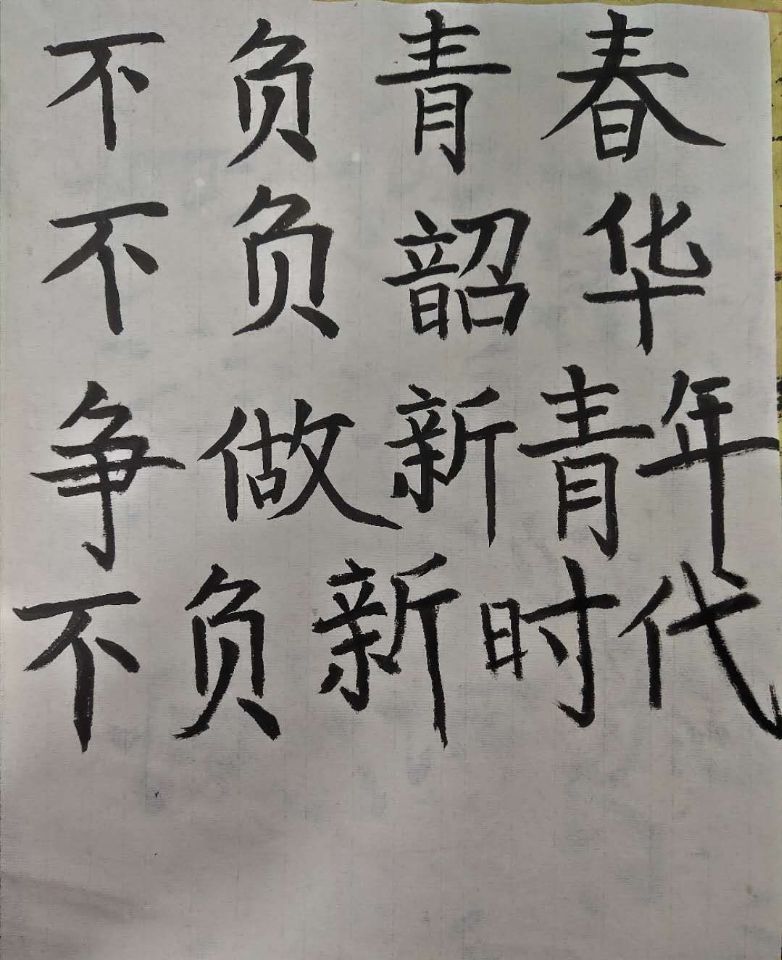 不负青春
不负韶华
争做新青年
不负新时代